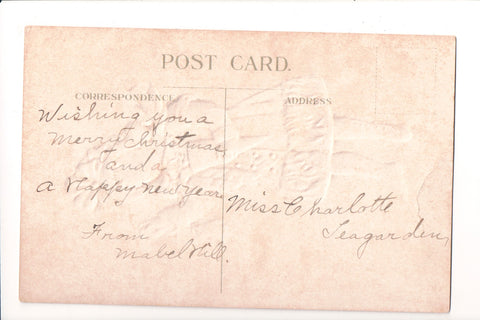 POST CARD.
CORRESPONDENCE
ADDRESS
Wishing you a
Merry Christmas
and a
a Happy New Year
Miss Charlotte
Teagarden,
From
Mabel Hill.